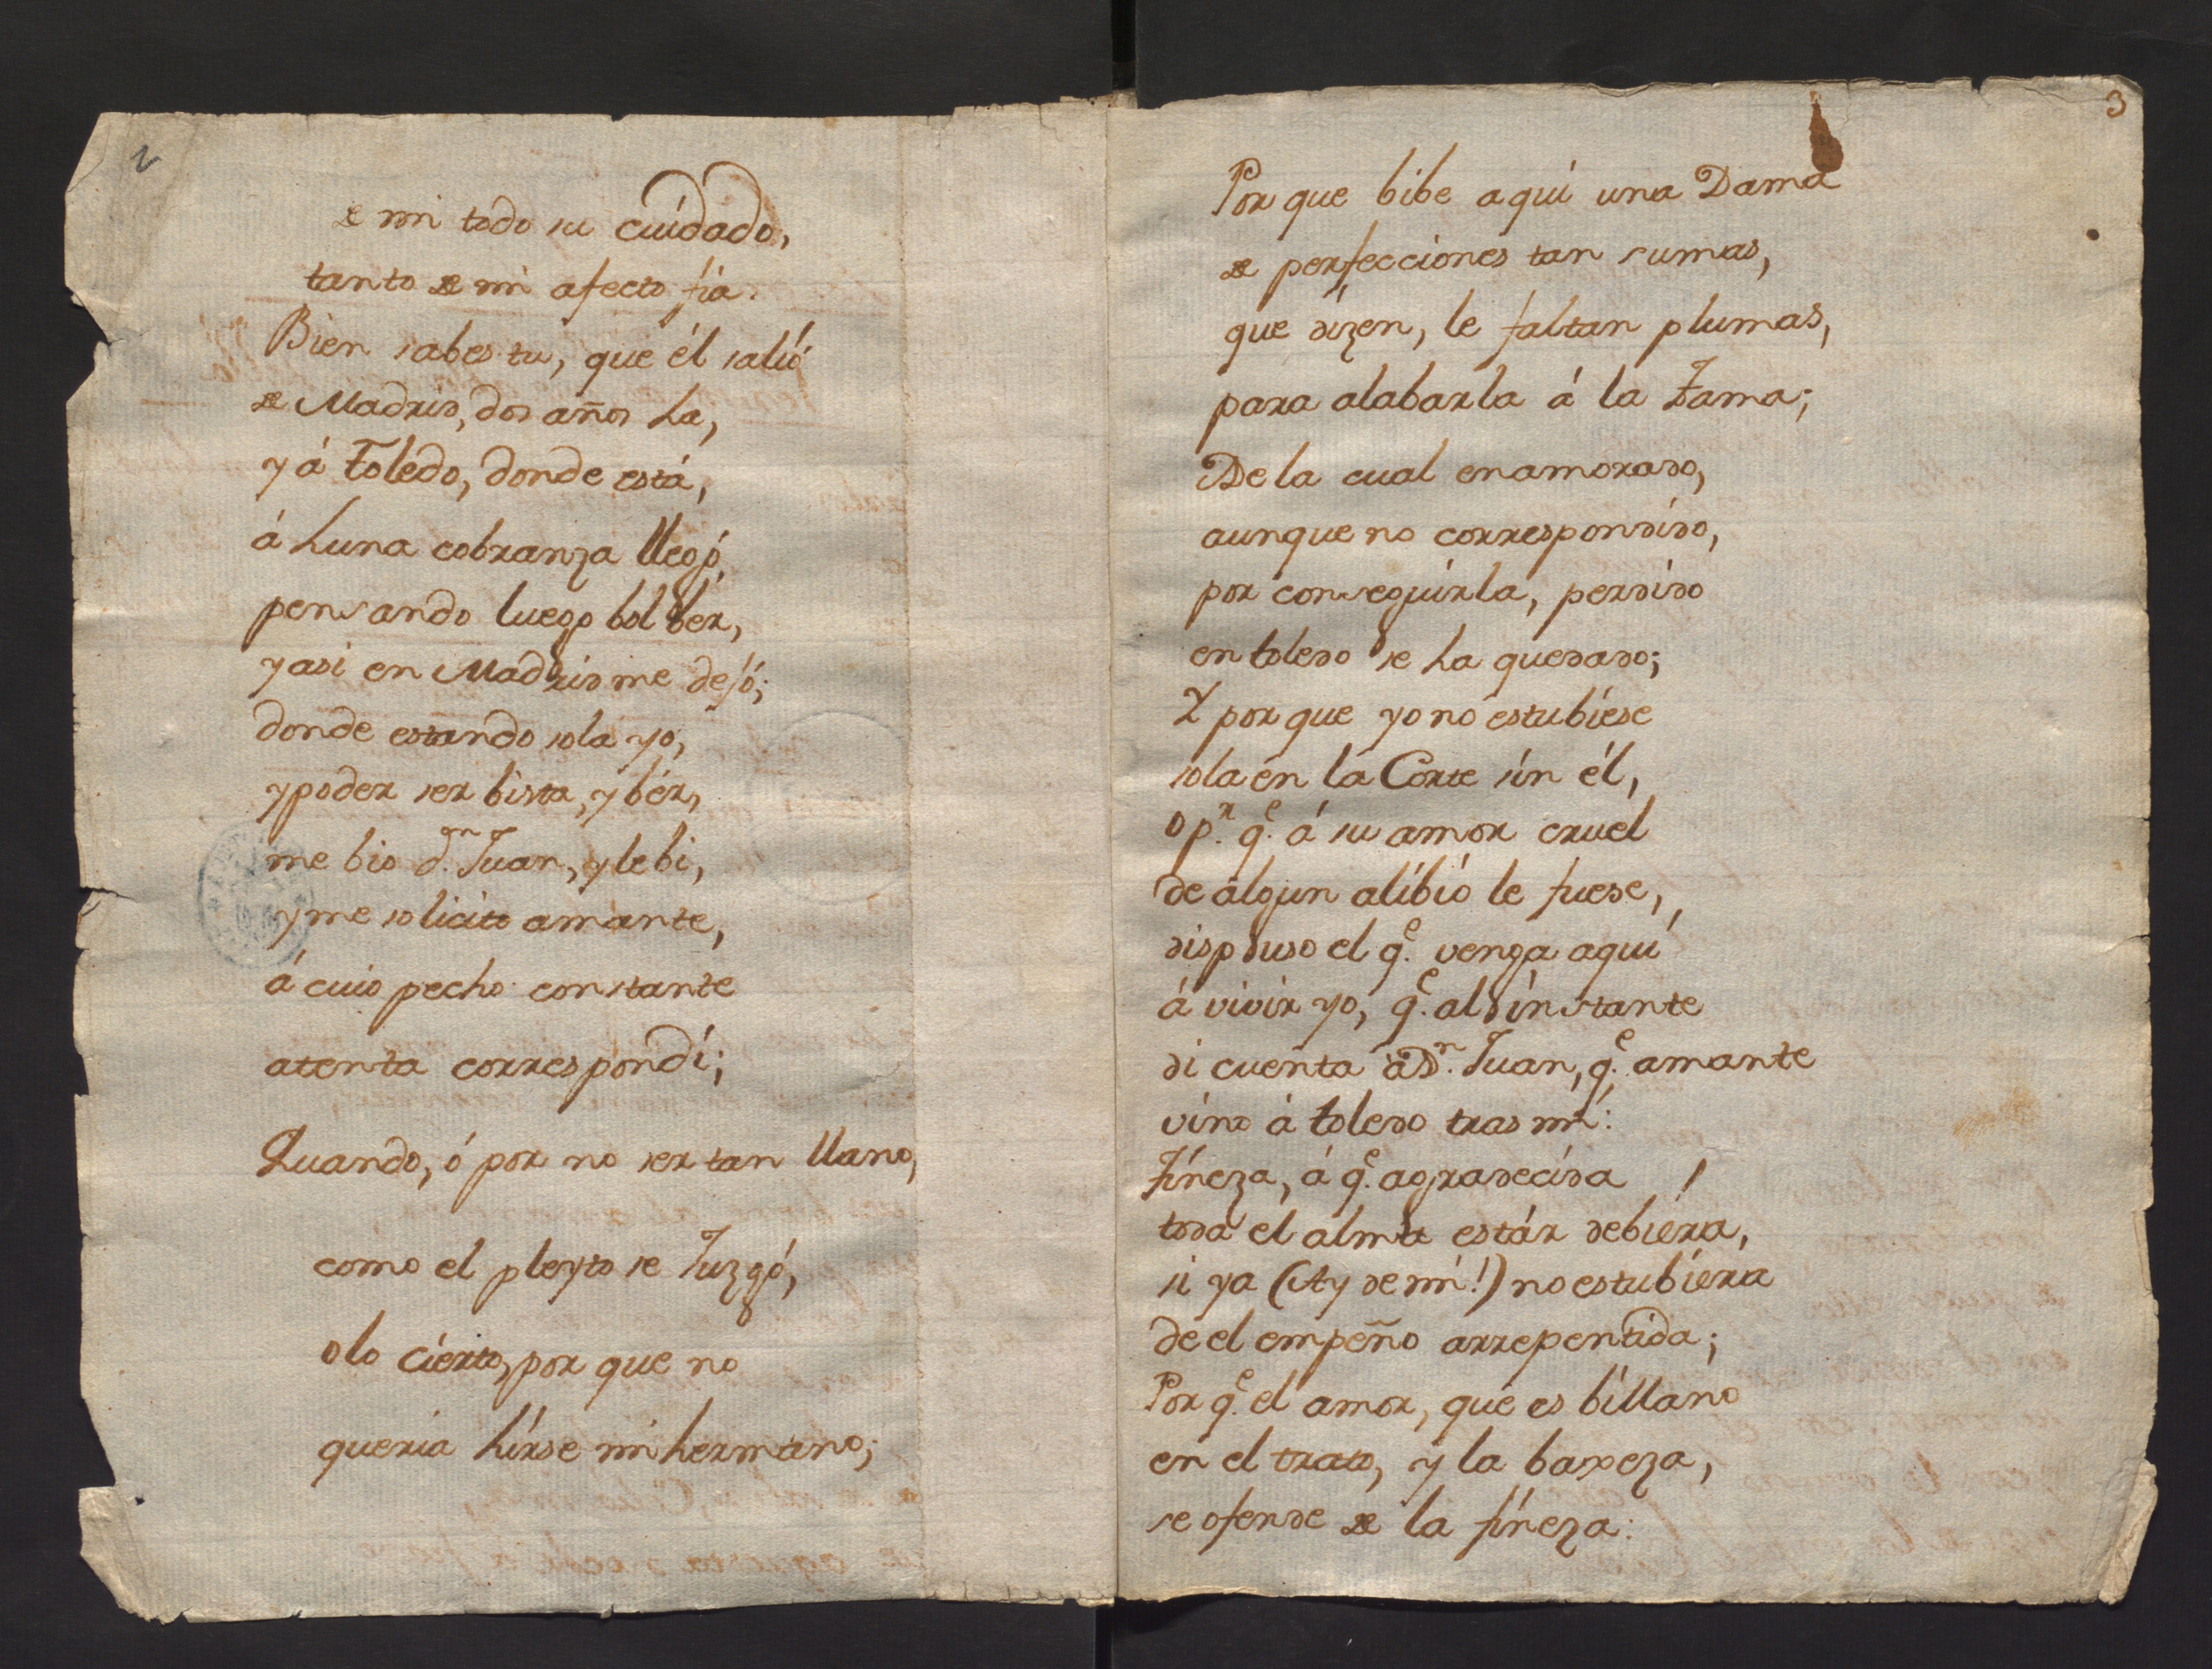 2
de mi todo su cuidado,
tanto de mi afecto fia.
Bien sabes tu, que él salió
de Madrid, dos años ha,
y á Toledo, donde está,
á huna cobranza llegó,
pensando luego bolber,
y asi en Madrid me dejó;
donde estando sola yo,
y poder ser bista, y bér,
me bio d.n Juan, y le bi,
y me solicito amante,
á cuio pecho constante
atenta correspondí;
Quando, ó por no ser tan llano,
como el pleyto se Juzgó,
o lo cierto, por que no
queria hirse mi hermano;
3
Por que bibe aqui una Dama
de perfecciones tan sumas,
que dizen, le faltan plumas,
para alabarla á la Fama;
De la cual enamorado,
aunque no correspondido,
por conseguirla, perdido
en toledo se ha quedado;
Y por que yo no estubiese
sola en la Corte sin él,
o p.r q.e á su amor cruel
de algun alibio le fuese,
dispuso el q.e venga aqui
á vivir yo, q.e al instante
di cuenta á D.n Juan, q.e amante
vino á toledo tras mi:
fineza, á q.e agradecida
toda el alma estár debiera,
si ya (Ay de mi!) no estubiera
de el empeño arrepentida;
Por q.e el amor, que es billano
en el trato, y la baxeza,
se ofende de la fineza: